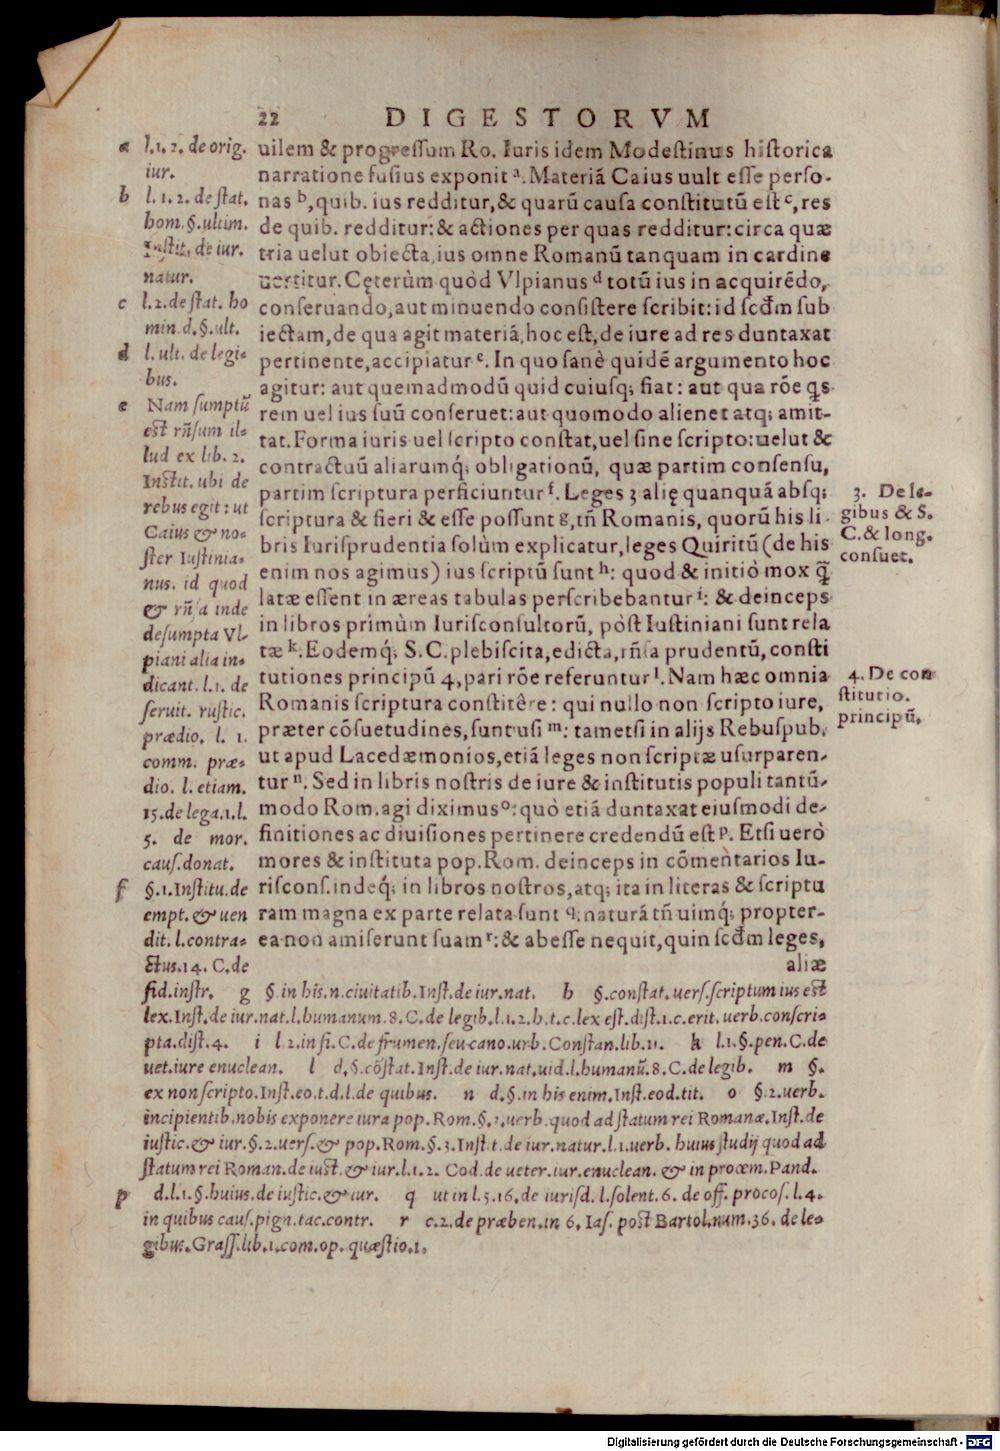 22 DIGESTORVM
uilem & progreſſum Ro. Iuris idem Modeſtinus hiſtorica
narratione fuſius exponit ᵃ. Materiã Caius uult eſſe perſo-
nas ᵇ, quib. ius redditur, & quarũ cauſa conſtitutũ eſt ᶜ, res
de quib. redditur: & actiones per quas redditur: circa quæ
tria uelut obiecta, ius omne Romanũ tanquam in cardine
uertitur. Cęterùm quòd Vlpianus ᵈ totũ ius in acquirẽdo,
conſeruando, aut minuendo conſiſtere ſcribit: id ſcđm ſub
iectam, de qua agit materiã, hoc eſt, de iure ad res duntaxat
pertinente, accipiatur ᵉ. In quo ſanè quidẽ argumento hoc
agitur: aut quemadmodũ quid cuiuſq; fiat: aut qua rõe qs
rem uel ius ſuũ conſeruet: aut quomodo alienet atq; amit-
tat. Forma iuris uel ſcripto conſtat, uel ſine ſcripto: uelut &
contractuũ aliarumq́; obligationũ, quæ partim conſenſu,
partim ſcriptura perficiuntur ᶠ. Leges ꝫ alię quanquã abſq;
ſcriptura & fieri & eſſe poſſunt ᵍ, tñ Romanis, quorũ his li-
bris Iuriſprudentia ſolùm explicatur, leges Quiritũ (de his
enim nos agimus) ius ſcriptũ ſunt ʰ: quod & initiò mox q̃
latæ eſſent in æreas tabulas perſcribebantur ⁱ: & deinceps
in libros primùm Iuriſconſultorũ, pòſt Iuſtiniani ſunt rela
tæ ᵏ. Eodemq́; S. C. plebiſcita, edicta, rñſa prudentũ, conſti
tutiones principũ 4, pari rõe referuntur ˡ. Nam hæc omnia
Romanis ſcriptura conſtitêre: qui nullo non ſcripto iure,
præter cõſuetudines, ſunt uſi ᵐ: tametſi in alijs Rebuſpub.
ut apud Lacedæmonios, etiã leges non ſcriptæ uſurparen-
tur ⁿ. Sed in libris noſtris de iure & inſtitutis populi tantũ-
modo Rom. agi diximus ᵒ: quò etiã duntaxat eiuſmodi de-
finitiones ac diuiſiones pertinere credendũ eſt ᵖ. Etſi uerò
mores & inſtituta pop. Rom. deinceps in cõmentarios Iu-
riſconſ. indeq́; in libros noſtros, atq; ita in literas & ſcriptu
ram magna ex parte relata ſunt q: naturã tñ uimq́; propter-
ea non amiſerunt ſuam ʳ: & abeſſe nequit, quin ſcđm leges,
aliæ
a l. 1. 2. de orig.
iur.
b l. 1. 2. de ſtat.
hom. §. ultim.
Inſtit. de iur.
natur.
c l. 2. de ſtat. ho
min. d. §. ult.
d l. ult. de legi-
bus.
e Nam ſumptũ
eſt rñſum il-
lud ex lib. 2.
Inſtit. ubi de
rebus egit: ut
Caius & no-
ſter Iuſtinia-
nus. id quod
& rñſa inde
deſumpta Vl-
piani alia in-
dicant. l. 1. de
ſeruit. ruſtic.
prædio. l. 1.
comm. præ-
dio. l. etiam.
15. de lega. 1. l.
5. de mor.
cauſ. donat.
f §. 1. Inſtitu. de
empt. & uen
dit. l. contra-
ctus. 14. C. de
3. De le-
gibus & S.
C. & long.
conſuet.
4. De con
ſtitutio.
principũ.
fid. inſtr. g §. in his. n. ciuitatib. Inſt. de iur. nat. h §. conſtat. uerſ. ſcriptum ius eſt
lex. Inſt. de iur. nat. l. humanum. 8. C. de legib. l. 1. 2. h. t. c. lex eſt. diſt. 1. c. erit. uerb. conſcri-
pta. diſt. 4. i l. 2. in fi. C. de frumen. ſeu cano. urb. Conſtan. lib. 11. k l. 1. §. pen. C. de
uet. iure enuclean. l d. §. cõſtat. Inſt. de iur. nat. uid. l. humanũ. 8. C. de legib. m §.
ex non ſcripto. Inſt. eo. t. d. l. de quibus. n d. §. in his enim. Inſt. eod. tit. o §. 2. uerb.
incipientib. nobis exponere iura pop. Rom. §. 3. uerb. quod ad ſtatum rei Romanæ. Inſt. de
iuſtic. & iur. §. 2. uerſ. & pop. Rom. §. 3. Inſt. t. de iur. natur. l. 1. uerb. huius ſtudij quod ad
ſtatum rei Roman. de iuſt. & iur. l. 1. 2. Cod. de ueter. iur. enuclean. & in proœm. Pand.
p d. l. 1. §. huius. de iuſtic. & iur. q ut in l. 5. 16. de iuriſd. l. ſolent. 6. de off. procoſ. l. 4.
in quibus cauſ. pign. tac. contr. r c. 2. de præben. in 6. Iaſ. poſt Bartol. num. 36. de le-
gibus. Graſſ. lib. 1. com. op. quæſtio. 1.
Digitalisierung gefördert durch die Deutsche Forschungsgemeinschaft - DFG